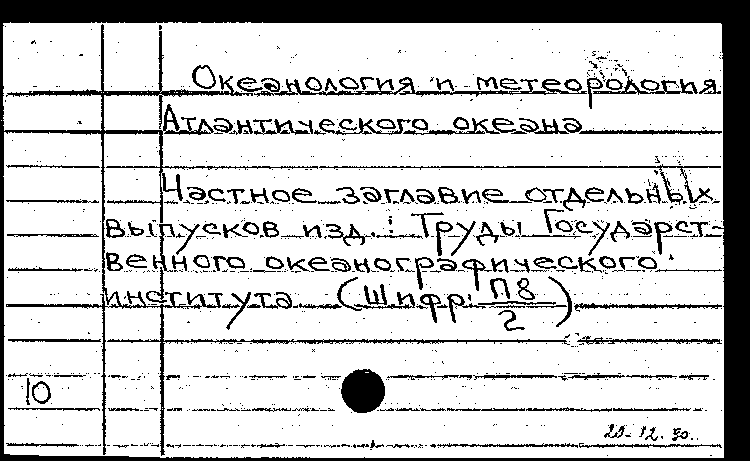 Океанология и метеорология
Атлантического океана
Частное заглавие отдельных
выпусков изд.: Труды Государст-
венного океанографического
института (Шифр: П8/2)
10